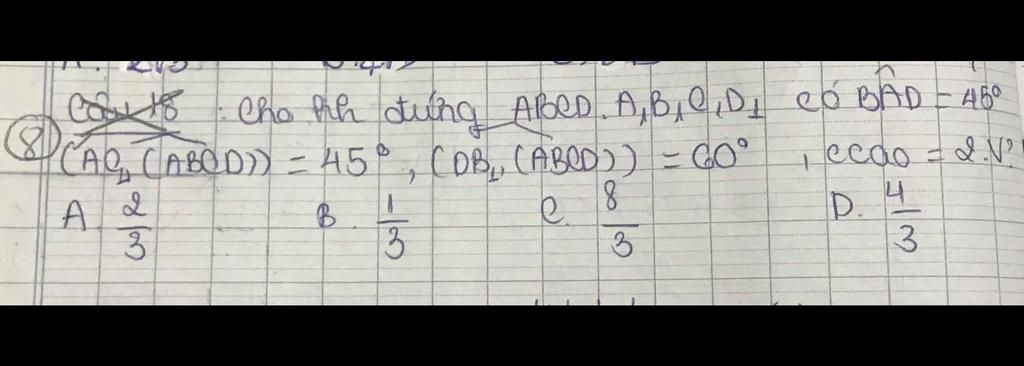 Câu 18 : cho hh đứng ABCD.A₁B₁C₁D₁ có BÂD = 45°
⑧ (AC₁, (ABCD)) = 45°, (DB₁, (ABCD)) = 60°, ccao = 2. V?
A. 2/3 B. 1/3 C. 8/3 D. 4/3